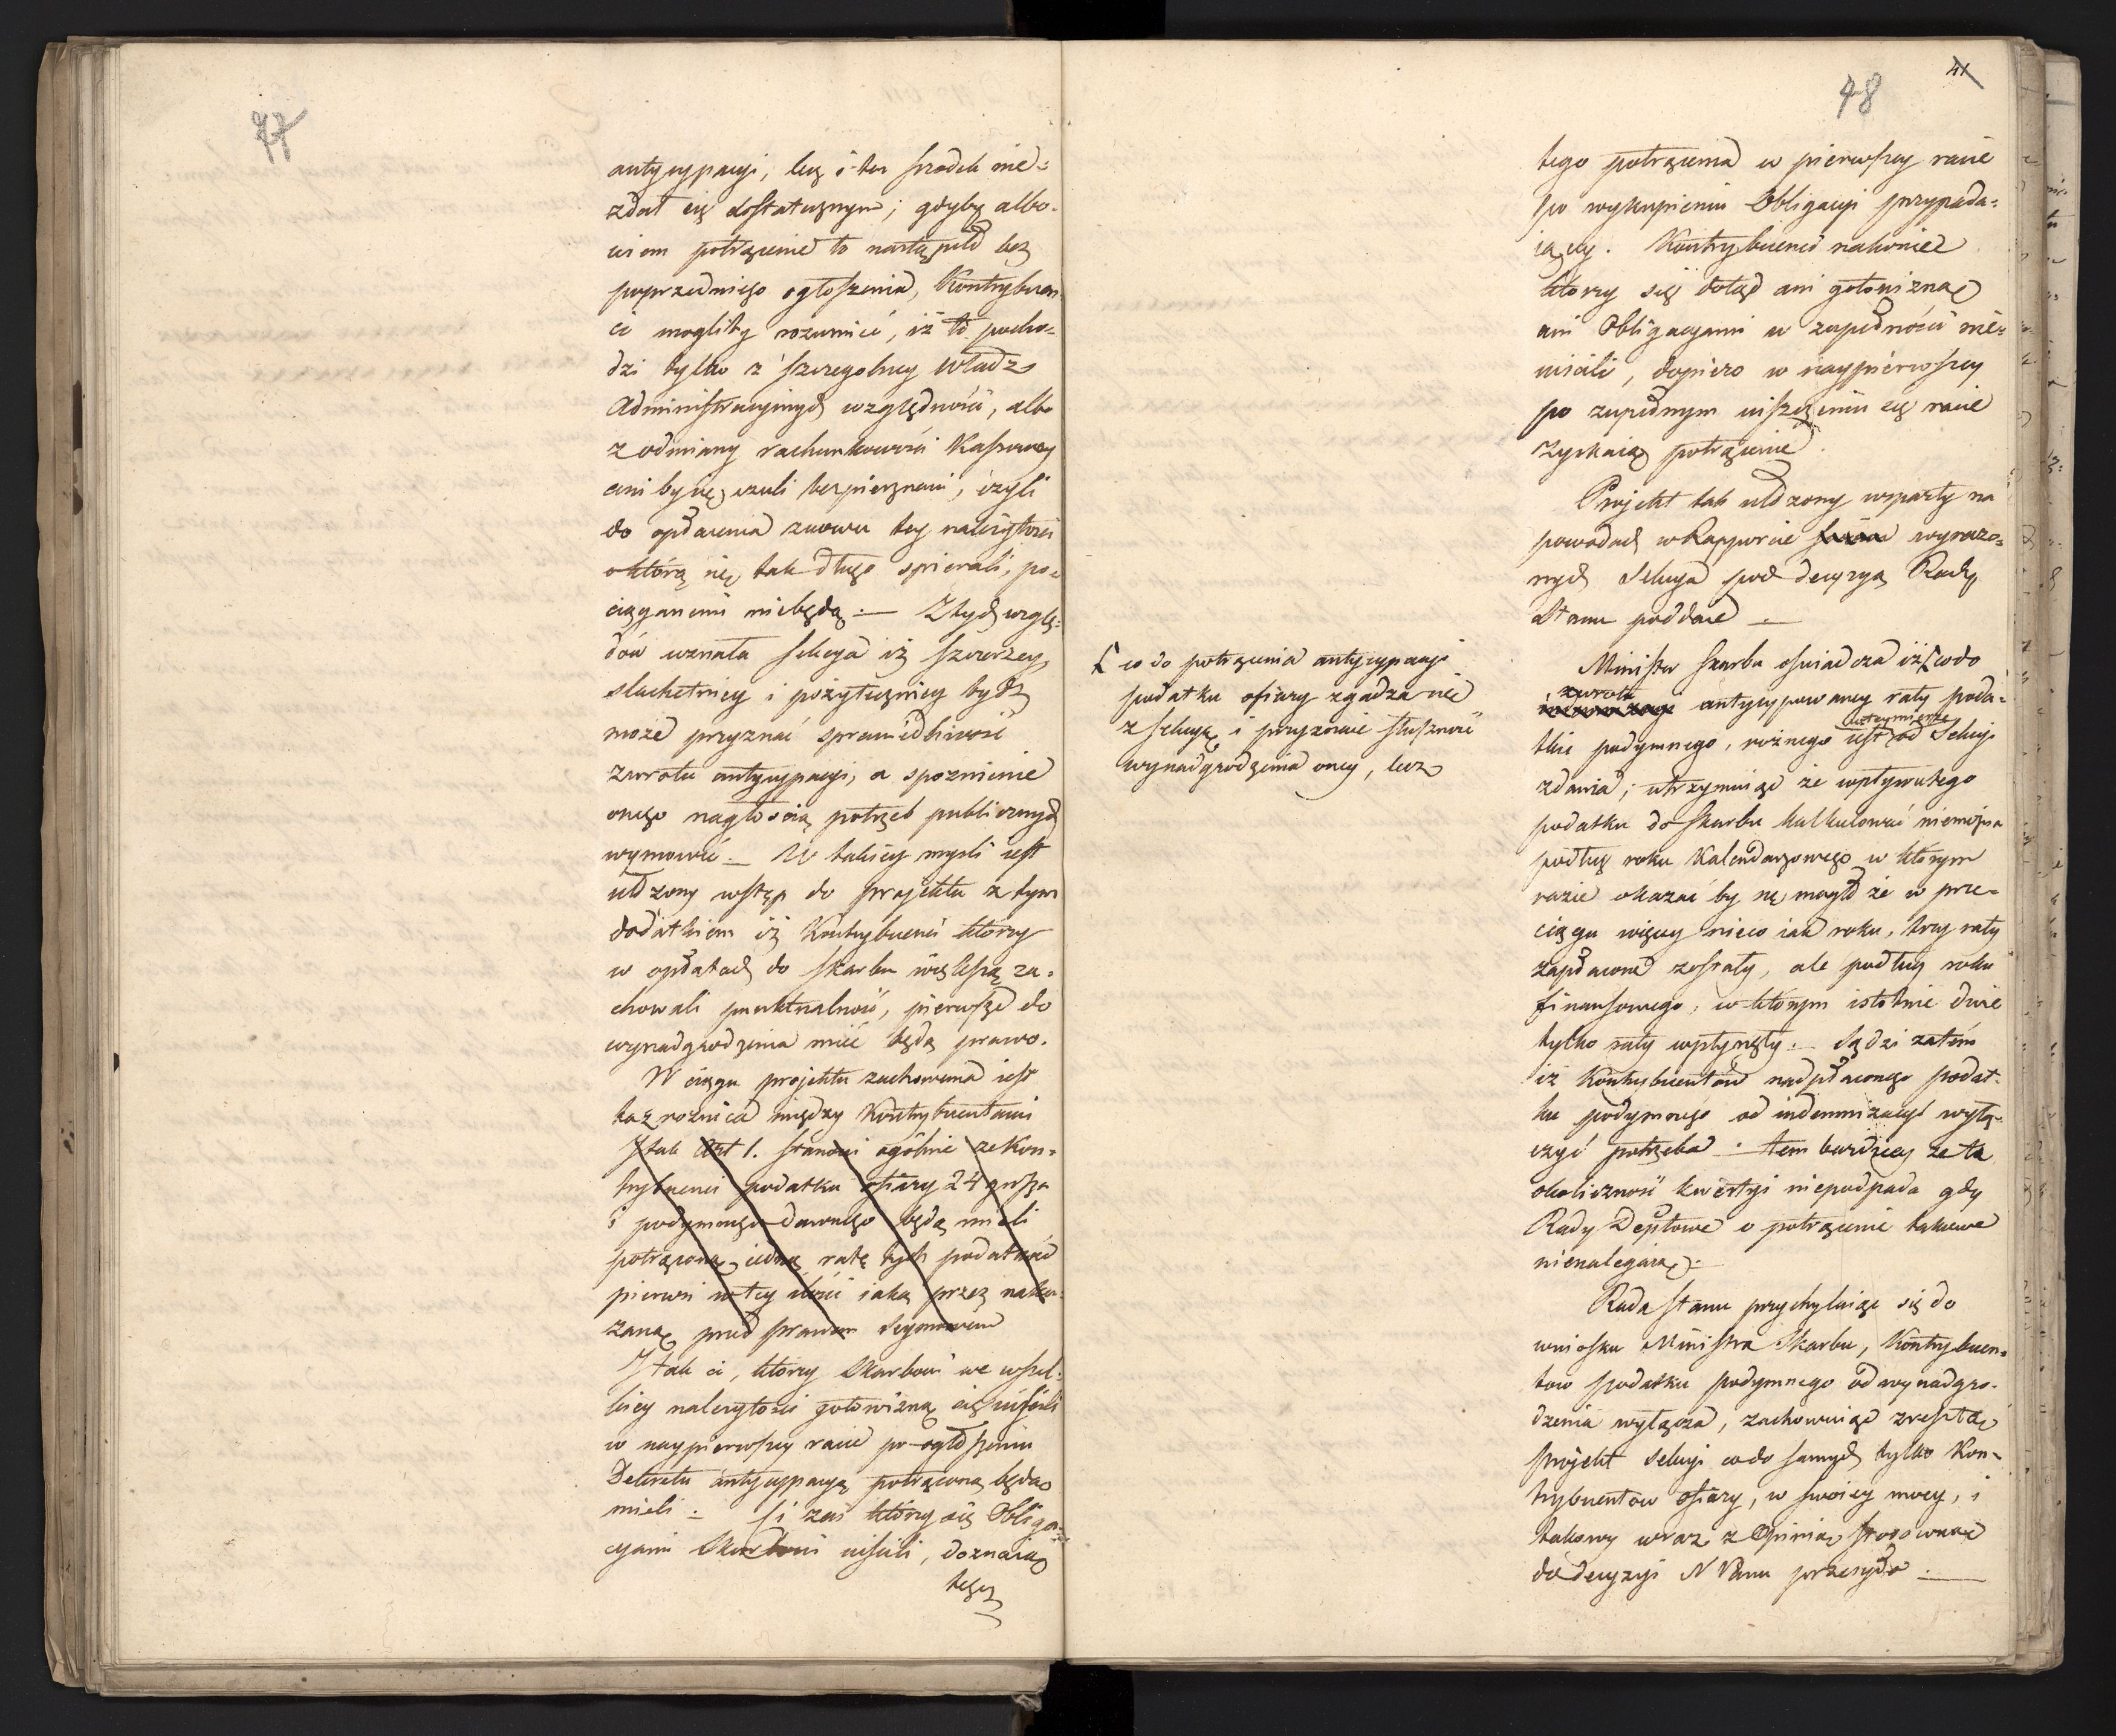 77
antycypacyi, lecz i ten srzodek nie-
zdał się dostatecznym; gdyby albo-
wiem potrącenie to nastąpiło bez
poprzedniego ogłoszenia, Kontrybuen
ci mogliby rozumieć, iż to pocho-
dzi tylko z szczegolney władz
Administracyinych względności, albo
z odmiany rachunkowości Kassowey
ani by się czuli bezpiecznemi, iżyli
do opłacenia znowu tey należytości
o którą się tak długo spierali, po-
ciąganemi niebędą. — Z tych wzglę-
dów uznała Sekcya iż szczerzey
slachetniey i pożyteczniey bydź
może przyznać sprawiedliwość
zwrotu antycypacyi, a spoznienie
onego nagłością potrzeb publicznych
wymowić. — W takiey mysli iest
ułożony wstęp do projektu z tym
dodatkiem iż Kontrybuenci którzy
w opłatach do skarbu większą za-
chowali punktualność, pierwsze do
wynadgrodzenia mieć będą prawo.
W ciągu projektu zachowana iest
taż roznica między Kontrybuentami
I tak Art 1. stanowi ogólnie że Kon-
trybuenci podatku ofiary 24 grosza
i podymnego dawnego będą mieli
potrąconą iedną ratę tych podatków
pierwsi w tey ilości iaka przez naka-
zaną przed prawem Seymowem
I tak ci, którzy Skarbowi we wszel-
kiey należytości gotowizną się uiścili
w naypierwszey racie po ogłoszeniu
Dekretu antycypacyą potrąconą będą
mieli. — Ci zaś którzy się Obliga-
cyami Skarbowi uiścili, doznaią
tego
48
41
tego potrącenia w pierwszey racie
po wykupieniu Obligacyi przypada-
iącey. Kontrybuenci nakoniec
którzy się dotąd ani gotowizną
ani Obligacyami w zupełności nie-
uiścili, dopiero w naypierwszey
po zupełnym uiszczeniu się racie
zyskaią potrącenie.
Projekt tak ułożony wsparty na
powodach w Rapporcie wyrazo-
nych Sekcya pod decyzyą Rady
Stanu poddaie —
Minister Skarbu oświadcza iż [ co do
zwrotu
antycypowaney raty poda-
tku podymnego, rożnego iest od Sekcyi
zdania; utrzymuiąc że wpływu tego
podatku do skarbu kalkulować niemożna
podług roku Kalendarzowego w którym
razie okazać by się mogło że w prze-
ciągu więcey nieco iak roku, trzy raty
zapłacone zostały, ale podług roku
finansowego, w którym istotnie dwie
tylko raty wpłynęły. — Sądzi zatem
iż Kontrybuentów nadpłaconego podat-
ku podymnego od indemnizacyi wyłą-
czyć potrzeba — tem bardziey że ta
okoliczność kwestyi niepodpada gdy
Rady Deptowe o potrącenie takowe
nienalegaią. —
Rada stanu przychylaiąc się do
wniosku Ministra Skarbu, Kontrybuen-
tow podatku podymnego od wynadgro-
dzenia wyłącza, zachowuiąc zresztą
projekt Sekcyi co do samych tylko Kon-
trybuentow ofiary, w swoiey mocy, i
takowy wraz z Opinią stosowną
do decyzyi N Panu przesyła. —
[ co do potrącenia antycypacyi
podatku ofiary zgadza się
z Sekcyą i przyznaie słuszność
wynadgrodzenia oney, lecz